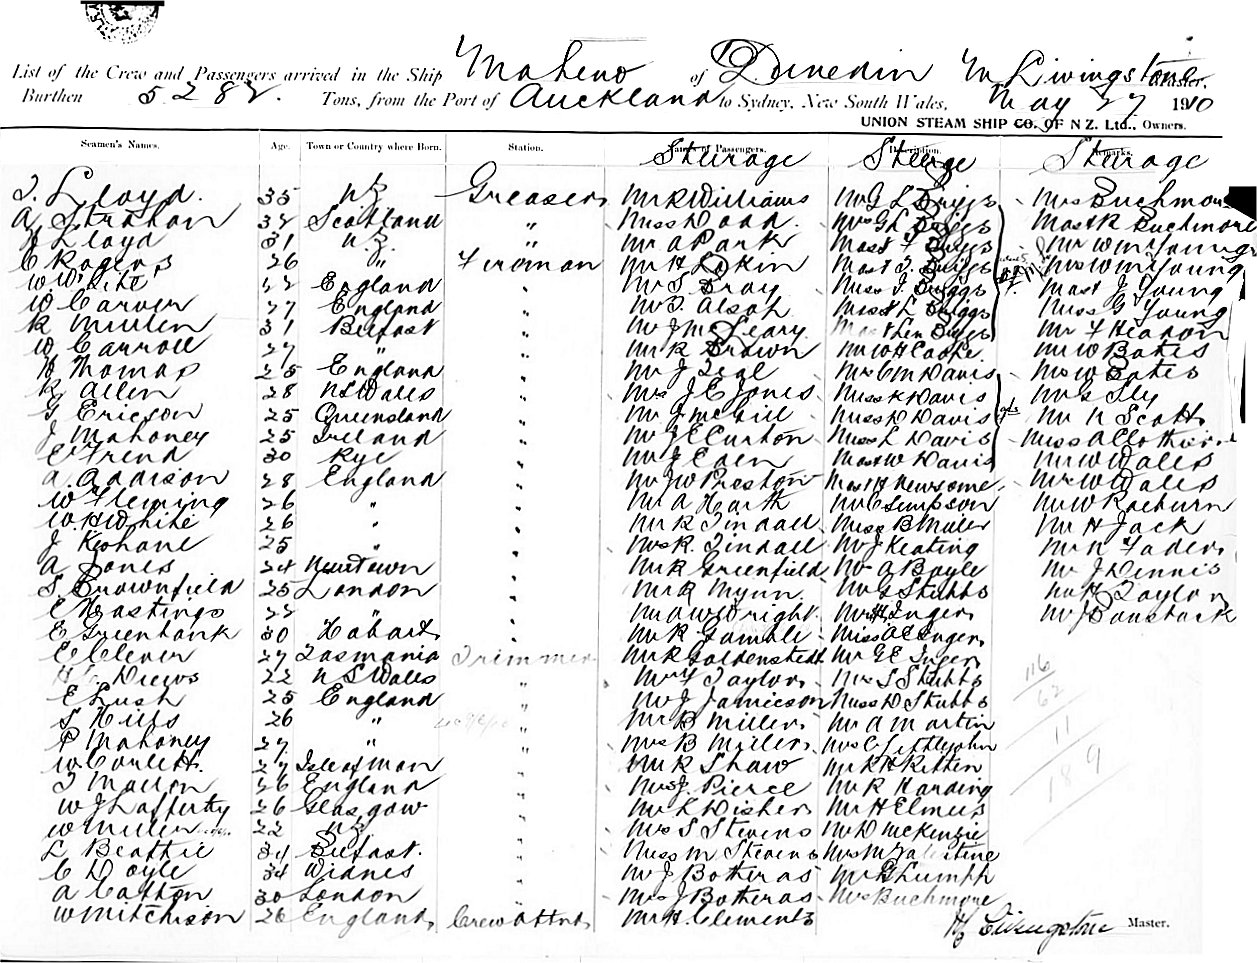 List of the Crew and Passengers arrived in the Ship Maheno of Dunedin M Livingstone Master,
Burthen 5282. Tons, from the Port of Auckland to Sydney, New South Wales, May 27 1910
UNION STEAM SHIP CO. OF N Z. Ltd., Owners.
Seamen's Names. Age. Town or Country where Born. Station. Names of Passengers. Description. Remarks.
Steerage Steerage Steerage
Lloyd. 35 NZ Greaser Mr R Williams Mr G L Briggs Mrs Buchmore
A Strahan 34 Scotland " Miss Dodd. Mrs GL Briggs Mast R Buchmore
Lloyd 31 N.Z. " Mr A Park Mast F Briggs Mr Wm Young
C Rogers 26 " Fireman Mr H Mast Briggs Mrs Wm Young
W White England " Mr S Bray Miss Briggs Mast J Young
W Carver 27 England " Mr T. Alsop Miss L Briggs Miss G Young
R Mullen 31 Belfast " Mr J McLeary Briggs Mr F Headon
W Carroll 27 " " Mr R Brown Mr W H Cooke. Mr W Bates
H Thomas 25 England " Mr J Zeal Mrs C M Davis Mrs W Bates
R Allen 28 N S Wales " Mrs J E Jones Miss K Davis Mrs Sly
G Ericson 25 Queensland " Mr J McGill Miss D Davis Mr N Scott
J Mahoney 25 Ireland " Mr J E Curton Miss L Davis Miss A Clothier
E Frend 30 Rye " Mr J Eden Mast W Davis Mr W Wales
A. Addison 28 England " Mr J W Preston Mast H Newsome Mrs W Wales
W Fleming 26 " " Mr A Harth Mr C Simpson Mr W Raeburn
W H White 26 " " Mr R Tindall Miss B Miller Mr H Jack
J Keohane 25 " " Mrs R. Tindall Mr J Keating Mr R Fader
A Jones 24 Newtown " Mr R Greenfield Mr A Boyle Mr J Dennis
S. Brownfield 25 London " Mr R Wynn. Mr G Stubbs Taylor
E Hastings 22 " " Mr A W Wright. Mr H Inger Mr J
E Greenbank 30 Hobart " Mr R Gamble Miss A E Inger
E Clever 27 Tasmania Trimmer Mr R Goldenstedt Mr G E Inger
Drews 22 N S Wales " Taylor Mrs S Stubbs
E Lush 25 England " Mr J Jamieson Miss D Stubbs
S Hills 26 " " Mr B Miller Mr A Martin
P Mahoney 27 " " Mrs B Miller Mrs C Littlejohn
W Corlett. 27 Isle of Man " Mr R Shaw Mr R H Kitten
T Mallon 26 England " Mrs J. Pierce Mr R Harding
W J Lafferty 26 Glasgow " Mr L Disher Mr H Elmers
W Miller 22 NZ " Mrs S Stevens Mr D McKenzie
L Beattie 34 Belfast. " Miss M Stevens Mrs M Valentine
C Doyle 34 Widnes " Mr J Botheras Mr B Lumph
A Catton 30 London " Mrs J Botheras Mrs Buchmore
W Mitchison 26 England Crew Attndt Mr H. Clements
116
62
11
189
Livingstone Master.